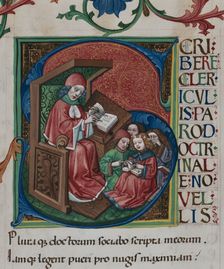 S CRI
BERE
CLER
ICVL
IS·P
AROD
OCTR
INAL
E·NO
VEL
LIS
Plura que doctorum sociabo scripta meorum.
Iamque legent pueri pro nugis maximiani.